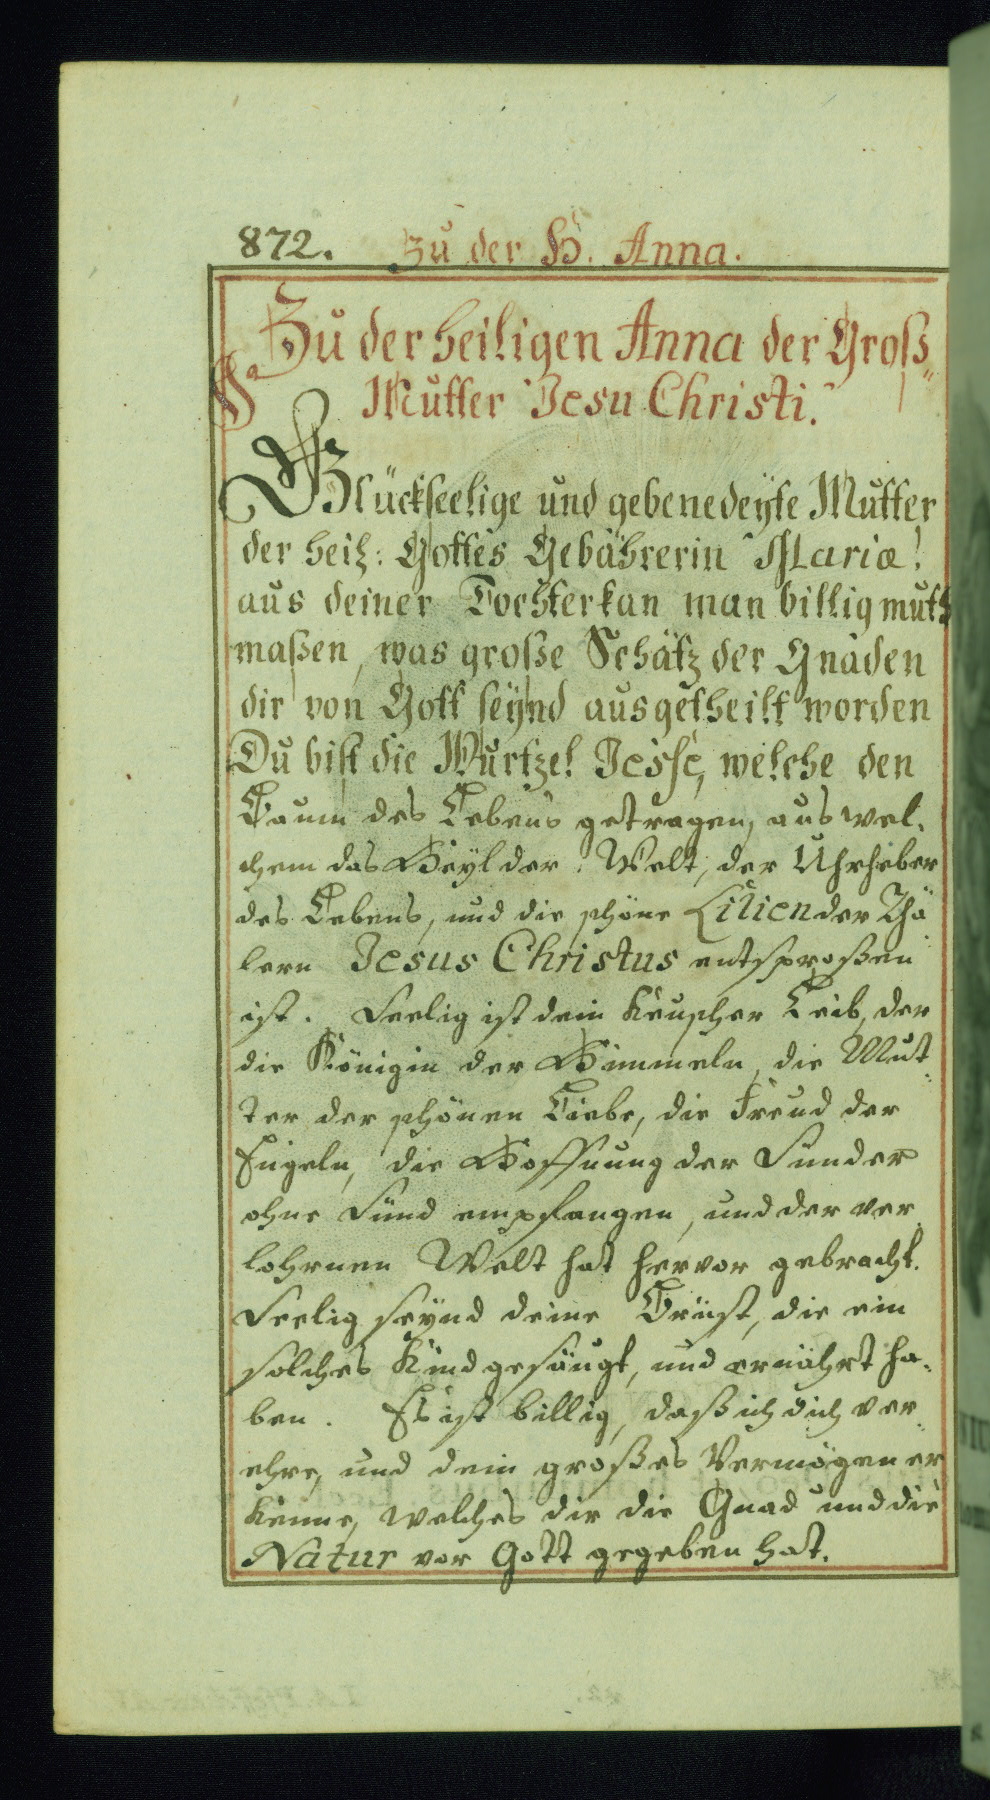 872. Zu der H. Anna.
Zu der heiligen Anna der Groß„
Mutter Jesu Christi.
Glückseelige und gebenedeyte Mutter
der heil: Gottes Gebährerin Mariæ!
aus deiner Tochter kan man billig muth
maßen, was große Schätz der Gnaden
dir von Gott seynd ausgetheilt worden
Du bist die Wurtzel Jesse, welche den
Baum des Lebens getragen, aus wel„
chem das Heyl der Welt, der Uhrheber
des Lebens, und die schöne Lilien der Thä
lern Jesus Christus entsproßen
ist. Seelig ist dein keuscher Leib, der
die Königin der Himmeln, die Mut„
ter der schönen Liebe, die Freud der
Engeln, die Hoffnung der Sünder
ohne Sünd empfangen, und der ver„
lohrnen Welt hat hervor gebracht.
Seelig seynd deine Brüst, die ein
solches Kind gesäugt, und ernährt ha„
ben. Es ist billig, daß ich dich ver„
ehre, und dein großes Vermögen er
kenne, welches dir die Gnad und die
Natur vor Gott gegeben hat.